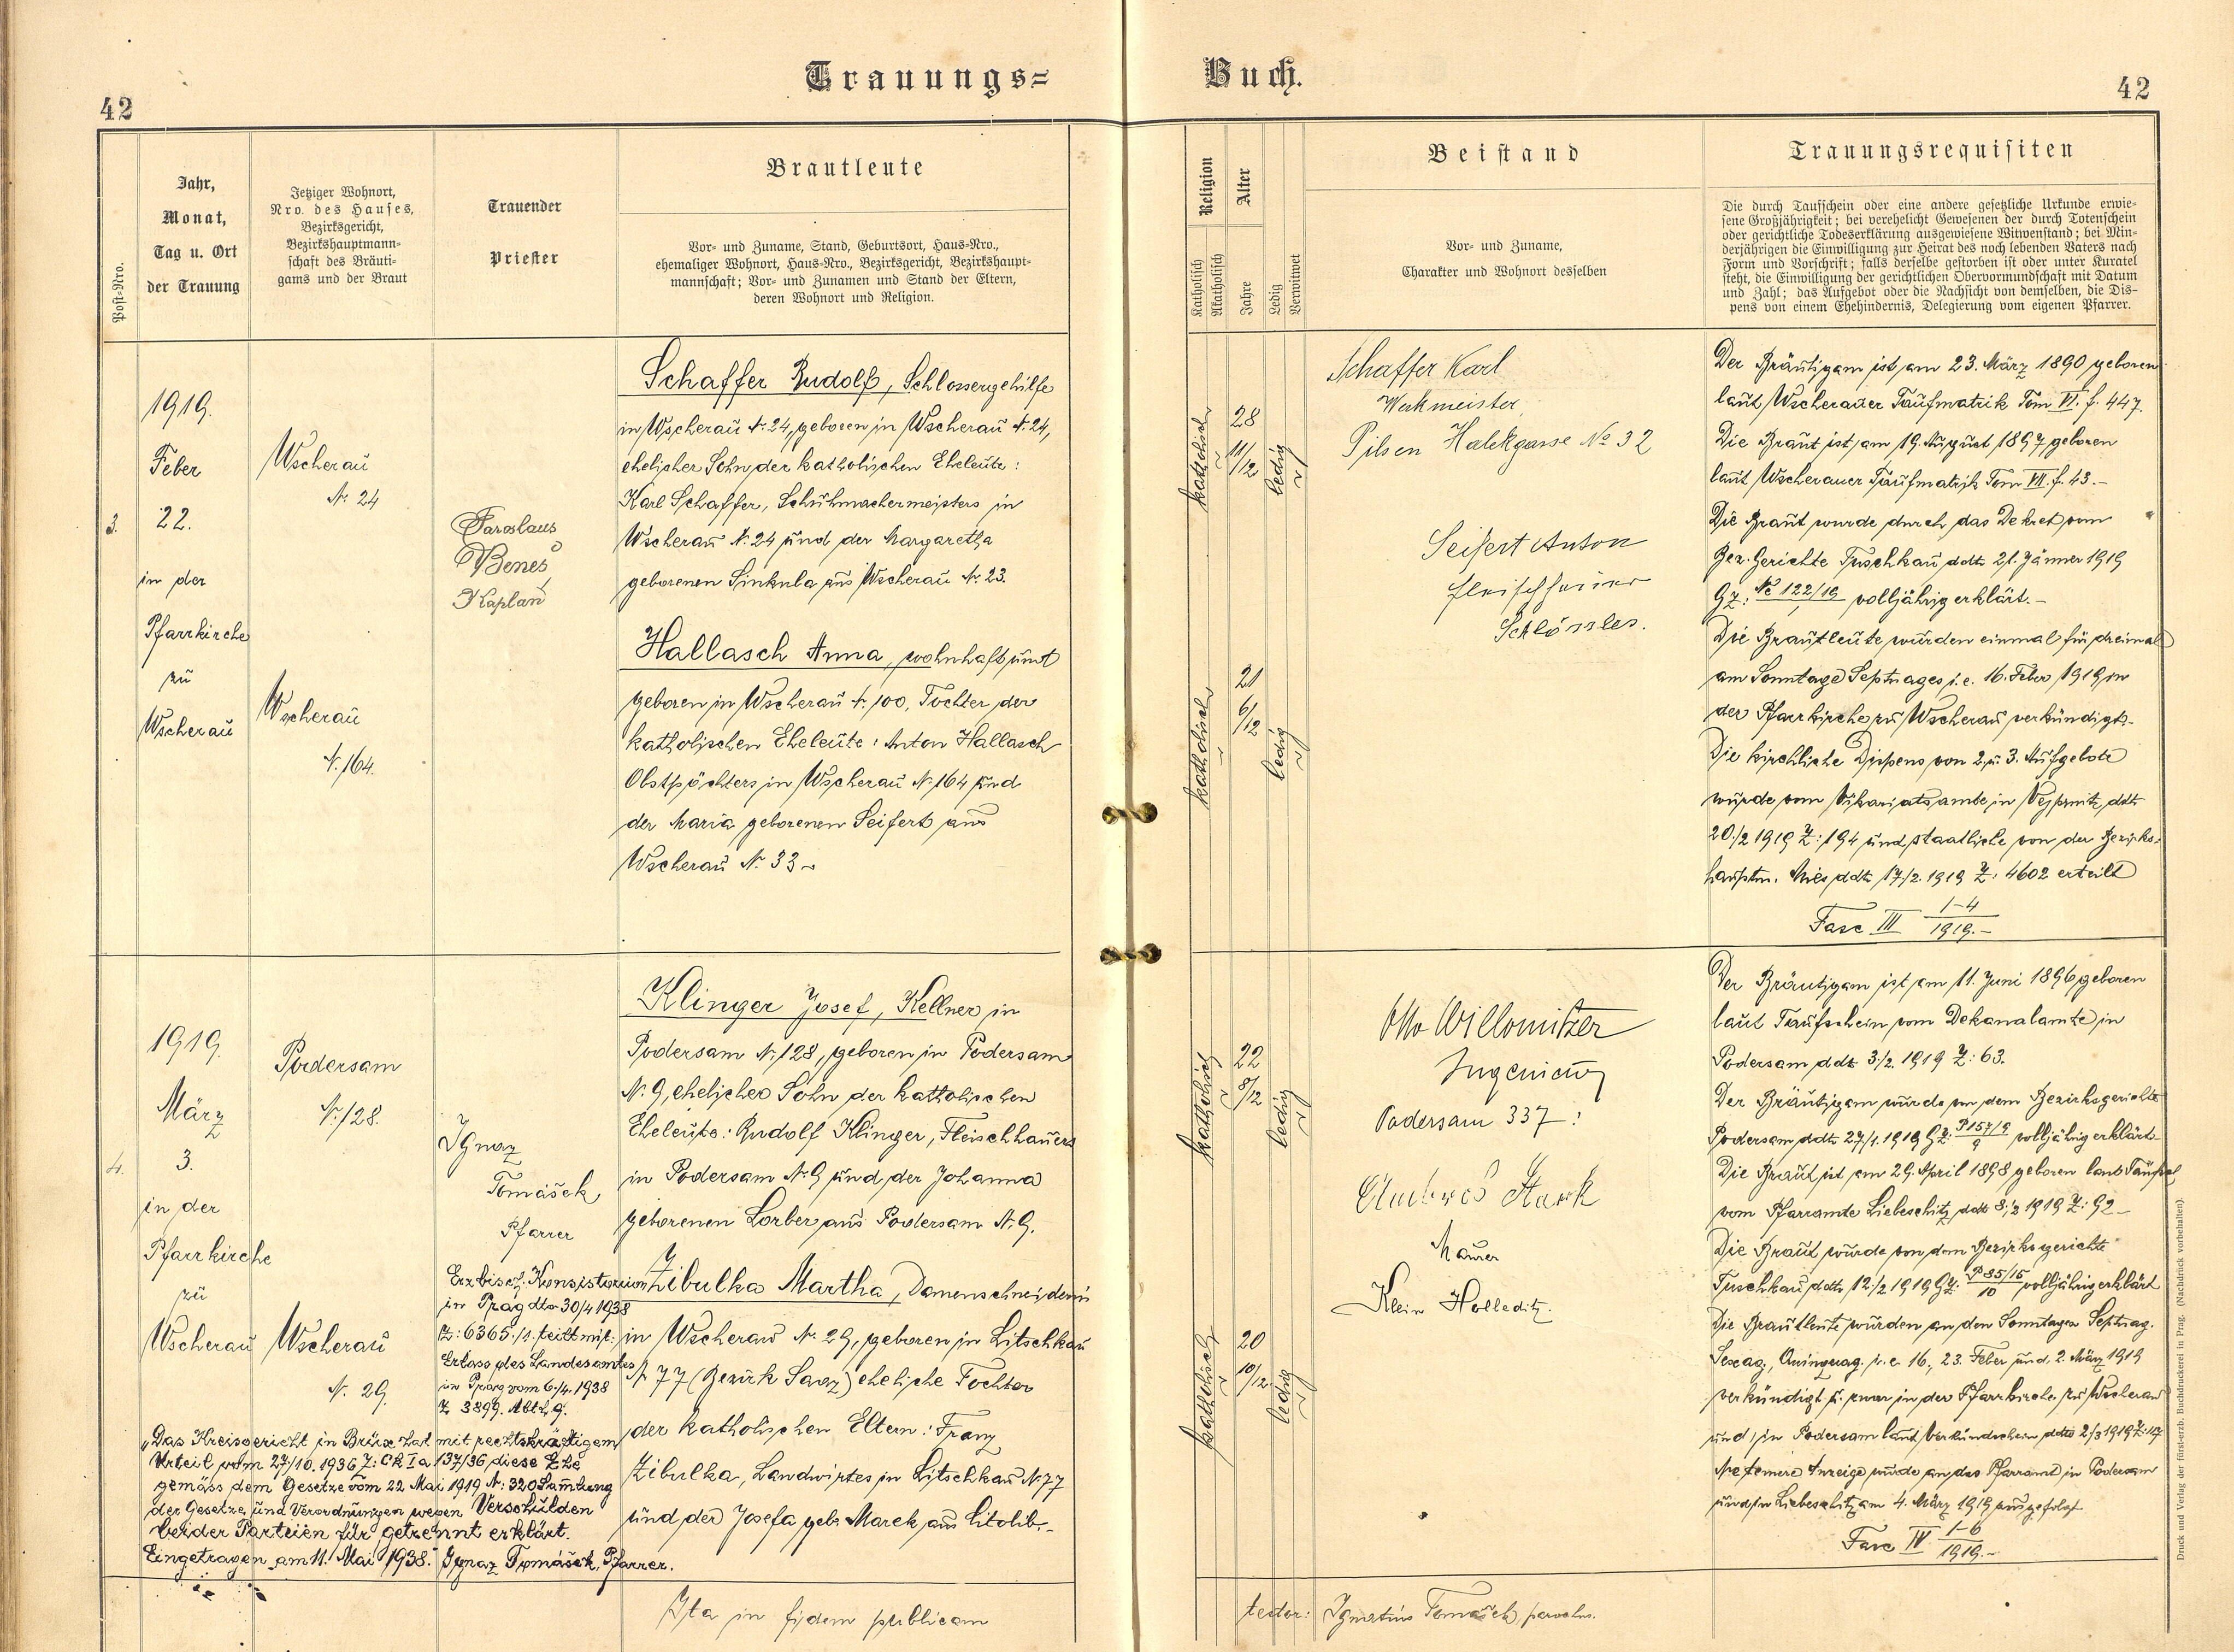 Trauungs=
Buch.
42
42
Post-Nro.
Jahr,
Monat,
Tag u. Ort
der Trauung
Jetziger Wohnort,
Nro. des Hauses,
Bezirksgericht,
Bezirkshauptmann-
schaft des Bräuti-
gams und der Braut
Trauender
Priester
Brautleute
Vor- und Zuname, Stand, Geburtsort, Haus-Nro.,
ehemaliger Wohnort, Haus-Nro., Bezirksgericht, Bezirkshaupt-
mannschaft; Vor- und Zunamen und Stand der Eltern,
deren Wohnort und Religion.
Religion
Katholisch
Akatholisch
Alter
Jahre
Ledig
Verwitwet
Beistand
Vor- und Zuname,
Charakter und Wohnort desselben
Trauungsrequisiten
Die durch Taufschein oder eine andere gesetzliche Urkunde erwie-
sene Großjährigkeit; bei verehelicht Gewesenen der durch Totenschein
oder gerichtliche Todeserklärung ausgewiesene Witwenstand; bei Min-
derjährigen die Einwilligung zur Heirat des noch lebenden Vaters nach
Form und Vorschrift; falls derselbe gestorben ist oder unter Kuratel
steht, die Einwilligung der gerichtlichen Obervormundschaft mit Datum
und Zahl; das Aufgebot oder die Nachsicht von demselben, die Dis-
pens von einem Ehehindernis, Delegierung vom eigenen Pfarrer.
3.
1919.
Feber
22.
in der
Pfarrkirche
zu
Wscherau
Wscherau
N. 24
Wscherau
N. 164.
Jaroslaus
Beneš
Kaplan
Schaffer Rudolf, Schlossergehilfe
in Wscherau N. 24, geboren in Wscherau N. 24,
ehelicher Sohn der katholischen Eheleute:
Karl Schaffer, Schuhmachermeisters in
Wscherau N. 24 und der Margaretha
geborenen Sinkula aus Wscherau N. 23.
Hallasch Anna, wohnhaft und
geboren in Wscherau N. 100, Tochter der
katholischen Eheleute: Anton Hallasch
Obstpächters in Wscherau N. 164 und
der Maria geborenen Seifert aus
Wscherau N. 33
katholisch
28
11/12
ledig
katholisch
21
6/12
ledig
Schaffer Karl
Werkmeister
Pilsen Halekgasse No 32
Seifert Anton
Fleischhauer
Schlössles.
Der Bräutigam ist am 23. März 1890 geboren
laut Wscherauer Taufmatrik Tom VI. f. 447.
Die Braut ist am 19. August 1897 geboren
laut Wscherauer Taufmatrik Tom VII. f. 43.-
Die Braut wurde durch das Dekret vom
Bez. Gerichte Tuschkau ddto 21. Jänner 1919
Gz: Nc 122/19 volljährig erklärt.-
Die Brautleute wurden einmal für dreimal
am Sonntage Septuages i. e. 16. Feber 1919 in
der Pfarrkirche zu Wscherau verkündigt.-
Die kirchliche Dispens von 2. u. 3. Aufgebote
wurde vom Vikariatsamte in Wejprnitz ddto
20./2 1919 Z: 194 und staatliche von der Bezirks-
hauptm. Mies ddto 17./2. 1919 Z: 4602 erteilt
Fasc III 1-4
1919.-
4.
1919.
März
3.
in der
Pfarrkirche
zu
Wscherau
Podersam
N. 128.
Wscherau
N. 29.
Ignaz
Tomášek,
Pfarrer
Klinger Josef, Kellner in
Podersam N. 128, geboren in Podersam
N. 9, ehelicher Sohn der katholischen
Eheleute: Rudolf Klinger, Fleischhauers
in Podersam N. 9 und der Johanna
geborenen Lorber aus Podersam N. 9.
Zibulka Martha, Damenschneiderin
in Wscherau N. 29, geboren in Litschkau
N 77 (Bezirk Saaz) eheliche Tochter
der katholischen Eltern: Franz
Zibulka, Landwirtes in Litschkau N 77
und der Josefa geb. Marek aus Citolib.-
Erzbisch. Konsistorium
in Prag dto 30/4 1938
Z: 6365/1. teilt mit:
Erlass des Landesamtes
in Prag vom 6./4. 1938
Z 3899. Abth. 9.
„Das Kreisgericht in Brüx hat mit rechtskräftigem
Urteil vom 27/10. 1936 Z: Ck I a 137/36 diese Ehe
gemäss dem Gesetze vom 22 Mai 1919 N: 320 Sammlung
der Gesetze und Verordnungen wegen Verschulden
beider Parteien für getrennt erklärt.
Eingetragen am 11. Mai 1938. Ignaz Tomášek, Pfarrer.
katholisch
22
8/12
ledig
katholisch
20
10/12
ledig
Otto Willomitzer
Ingenieur
Podersam 337
Ambros Stark
Maurer
Klein Holleditz.
Der Bräutigam ist am 11. Juni 1896 geboren
laut Taufschein vom Dekanalamte in
Podersam ddto 3./2. 1919 Z: 63.
Der Bräutigam wurde von dem Bezirksgerichte
Podersam ddto 27/1. 1919 Gz: P 157/9
9 volljährig erklärt.-
Die Braut ist am 29. April 1898 geboren laut Taufschl
vom Pfarramte Liebeschitz ddto 8./2 1919 Z: 92-
Die Braut wurde von dem Bezirksgerichte
Tuschkau ddto 12./2 1919 Gz: P 85/15
10 volljährig erklärt
Die Brautleute wurden an den Sonntagen Septuag.
Sexag., Quinquag. i. e. 16., 23. Feber und 2. März 1919
verkündigt u. zwar in der Pfarrkirche zu Wscherau
und in Podersam laut Verkündschein ddto 2/3 1919 Z: 117
Anzeige wurde an das Pfarramt in Podersam
und in Liebeschitz am 4. März 1919 ausgefolgt
Fasc IV 1-6
1919.-
Ita in fidem publicam
testor: Ignatius Tomášek parochus.
Druck und Verlag der fürst-erzb. Buchdruckerei in Prag. (Nachdruck vorbehalten).